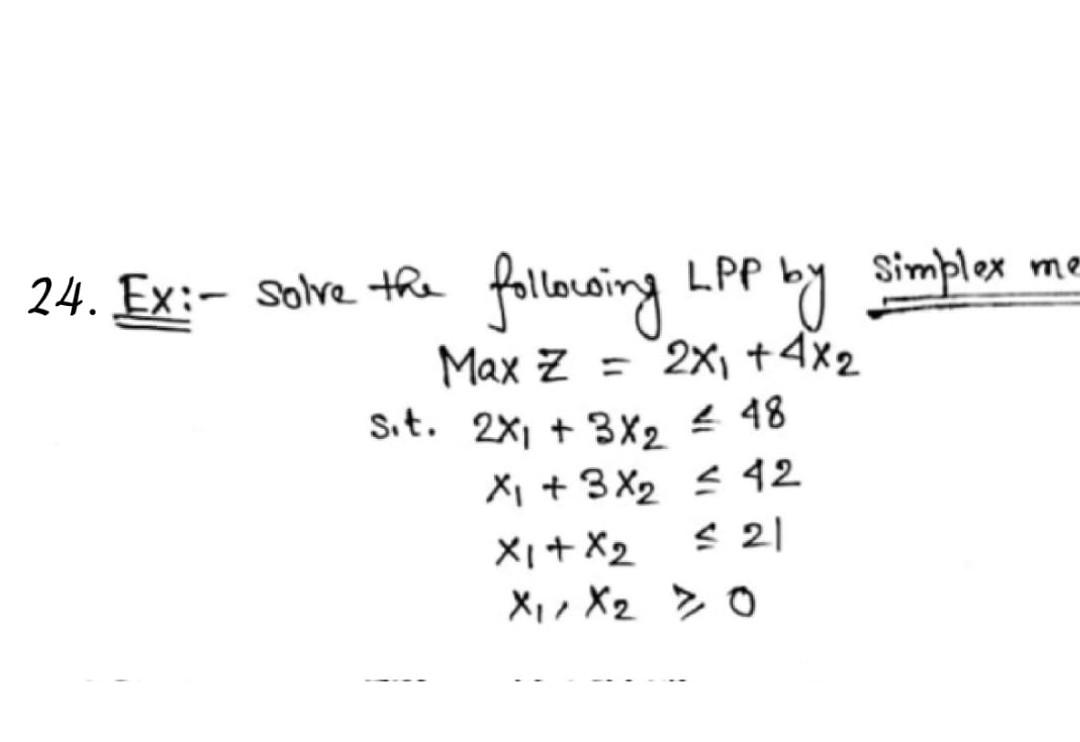 24. Ex:- Solve the following LPP by Simplex me
Max Z = 2x₁ + 4x₂
s.t. 2x₁ + 3x₂ ≤ 48
x₁ + 3x₂ ≤ 42
x₁ + x₂ ≤ 21
x₁, x₂ ≥ 0